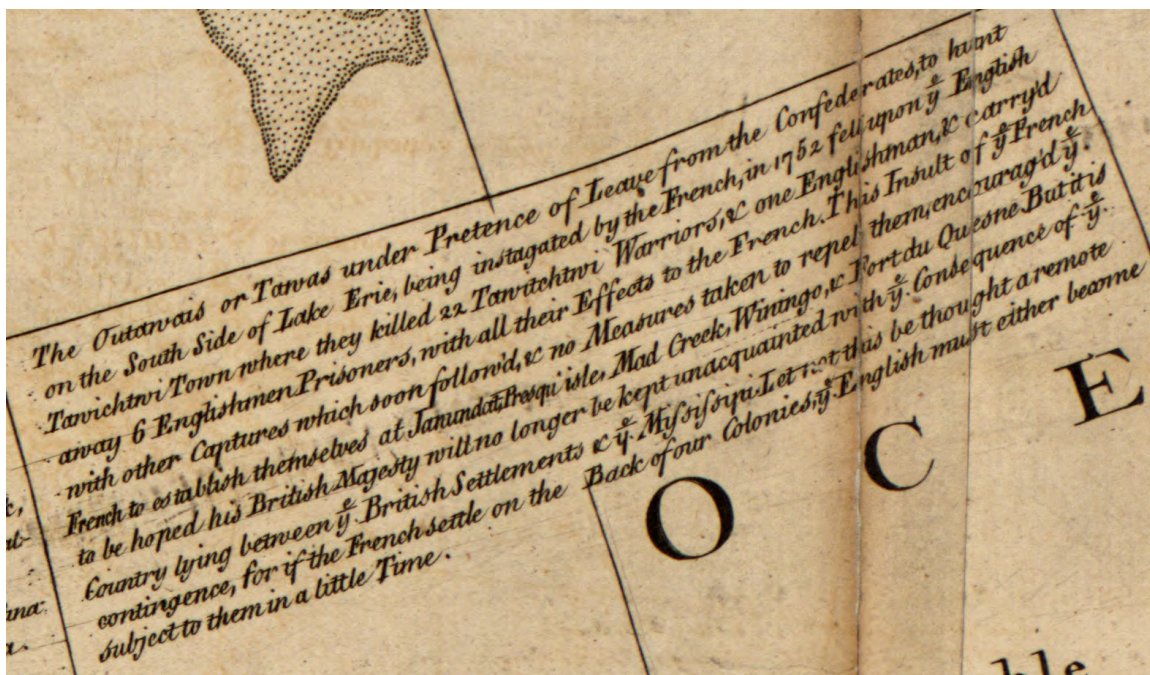 The Outawais or Tawas under Pretence of Leave from the Confederates, to hunt
on the South Side of Lake Erie, being instagated by the French, in 1752 fell upon yͤ English
Tawichtwi Town where they killed 22 Tawitchtwi Warriors, & one Englishman, & carry'd
away 6 Englishmen Prisoners, with all their Effects to the French. This Insult of yͤ French
with other Captures which soon follow'd, & no Measures taken to repel them, encourag'd yͤ.
French to establish themselves at Janundat, Presqu'isle, Mad Creek, Winingo, & Fort du Quesne But it is
to be hoped his British Majesty will no longer be kept unacquainted with yͤ. Consequence of yͤ.
Country lying between yͤ. British Settlements & yͤ. Myſsiſsipi. Let not this be thought a remote
contingence, for if the French settle on the Back of our Colonies, yͤ. English must either become
subject to them in a little Time.
O C E
ble